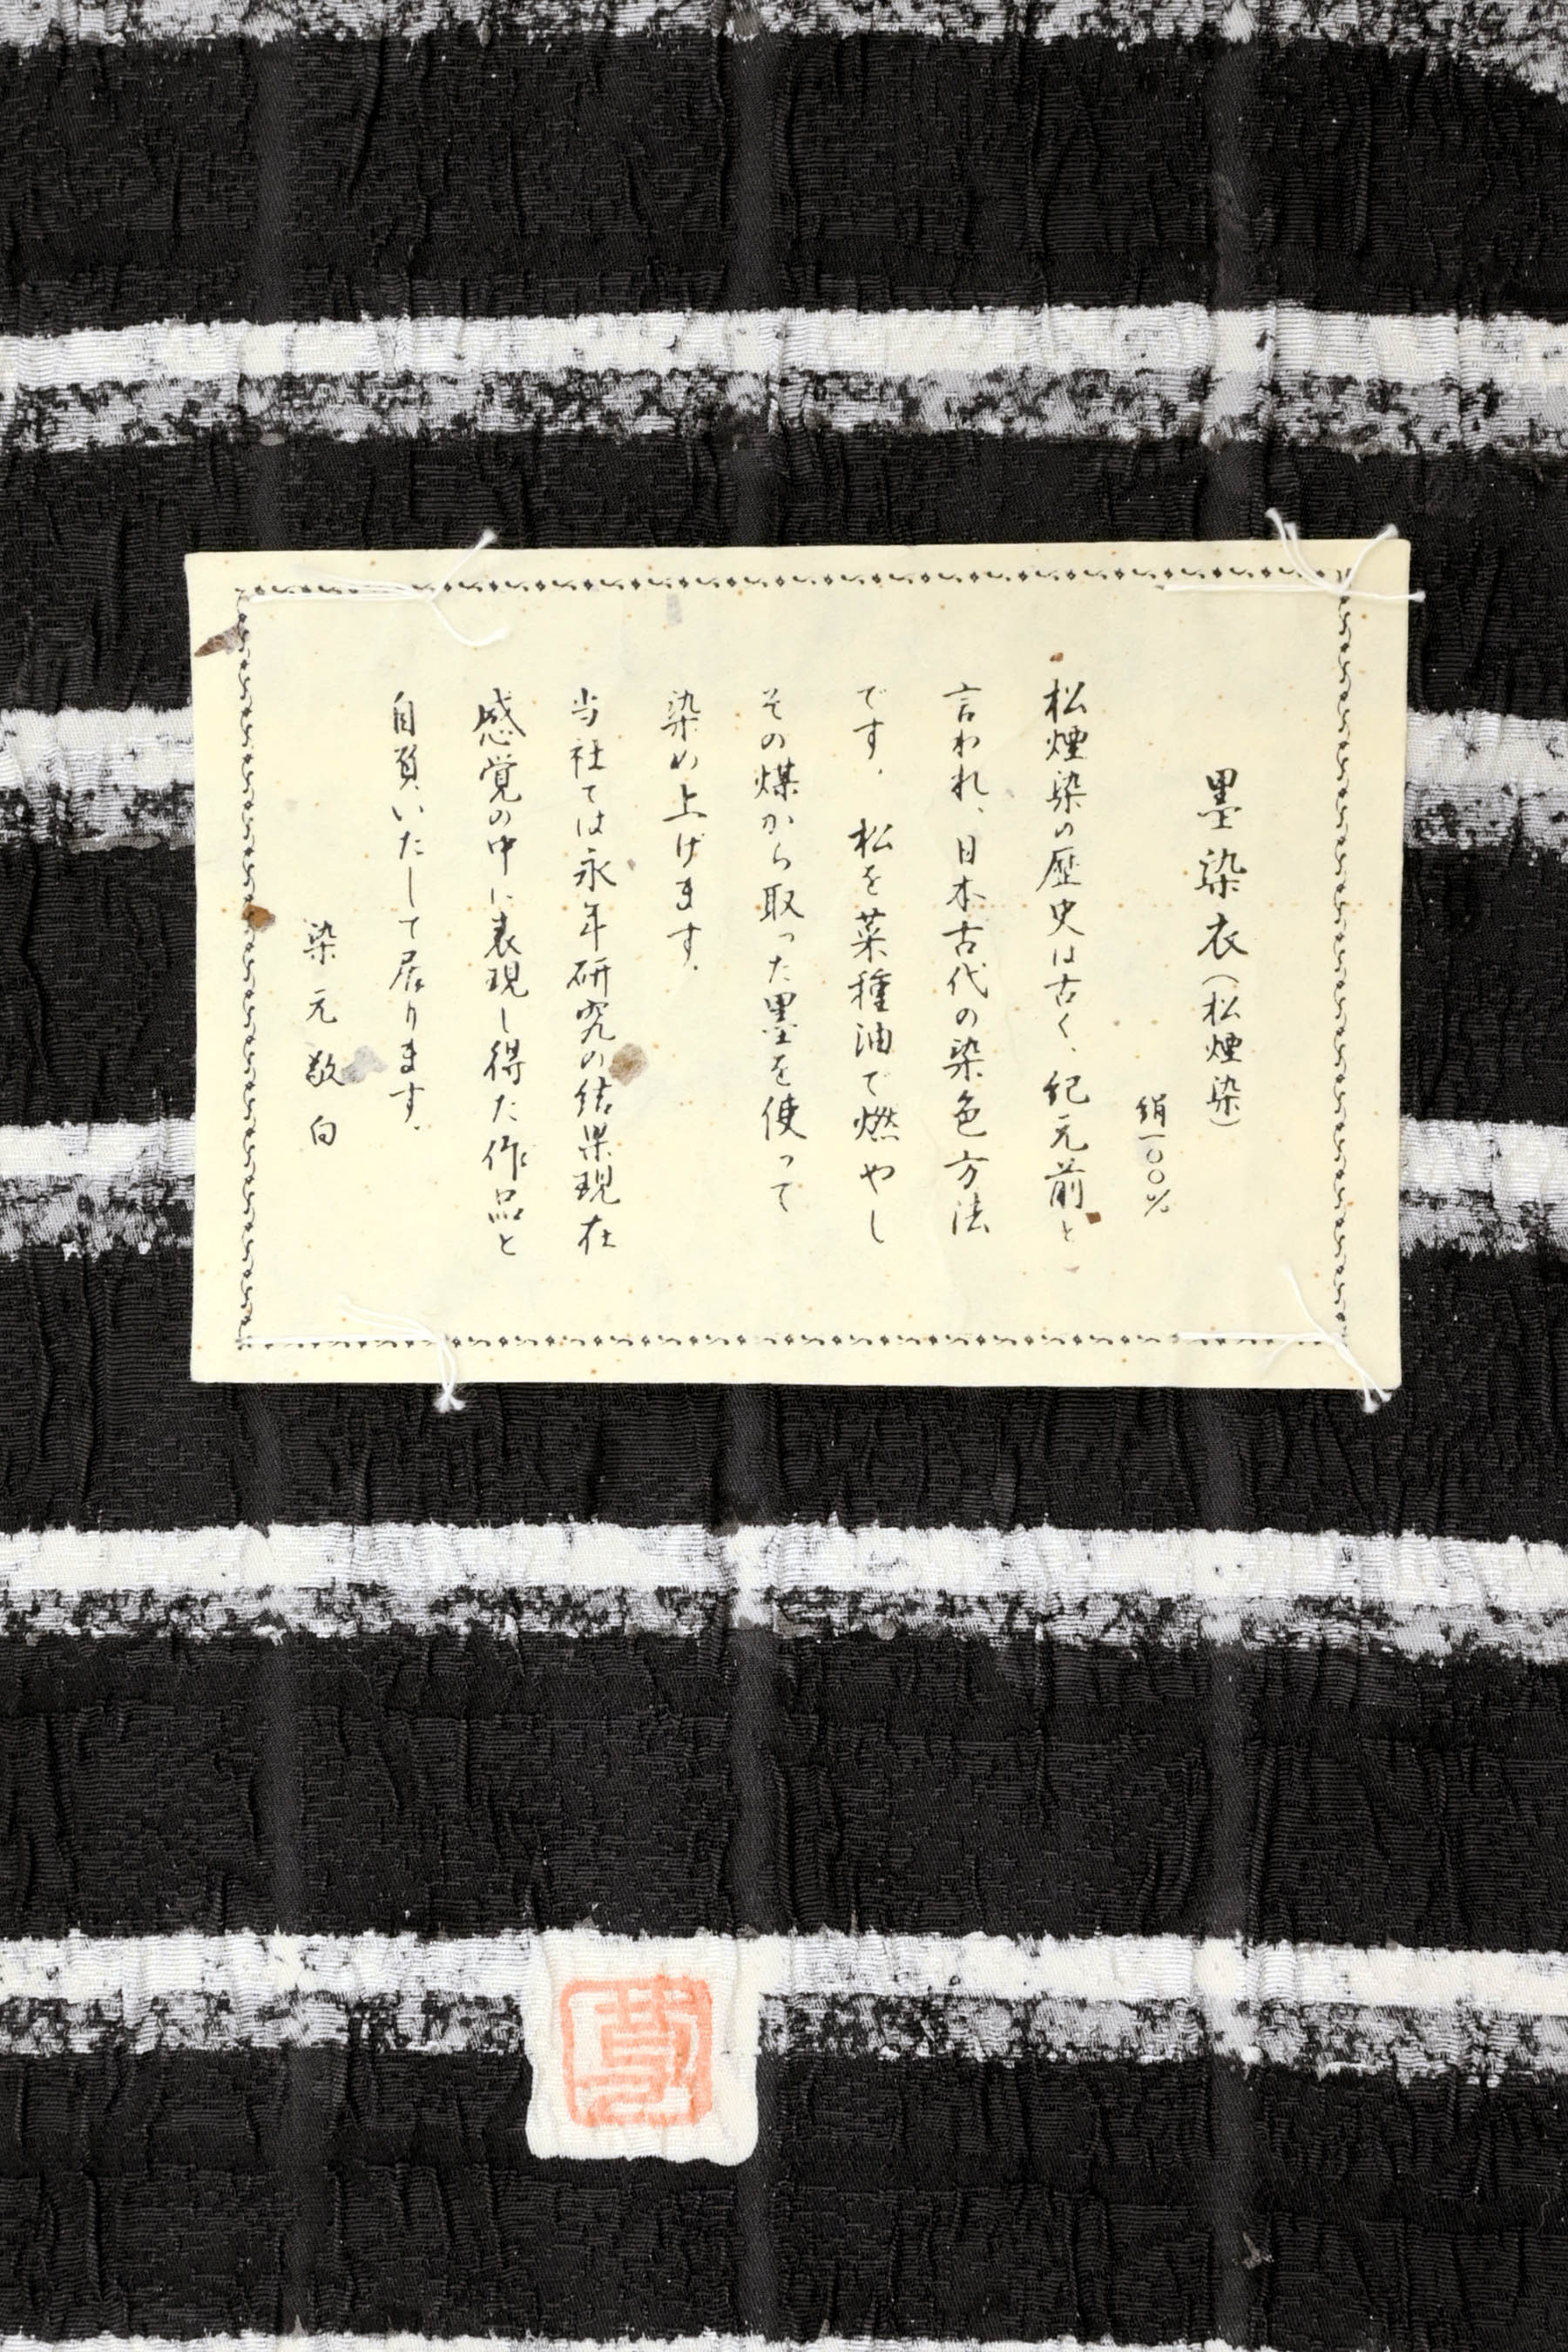 墨染衣(松煙染)
絹一〇〇%
松煙染の歴史は古く、紀元前と
言われ、日本古代の染色方法
です。松を菜種油で燃やし
その煤から取った墨を使って
染め上げます。
当社では永年研究の結果現在
感覚の中に表現し得た作品と
自負いたして居ります。
染元敬白